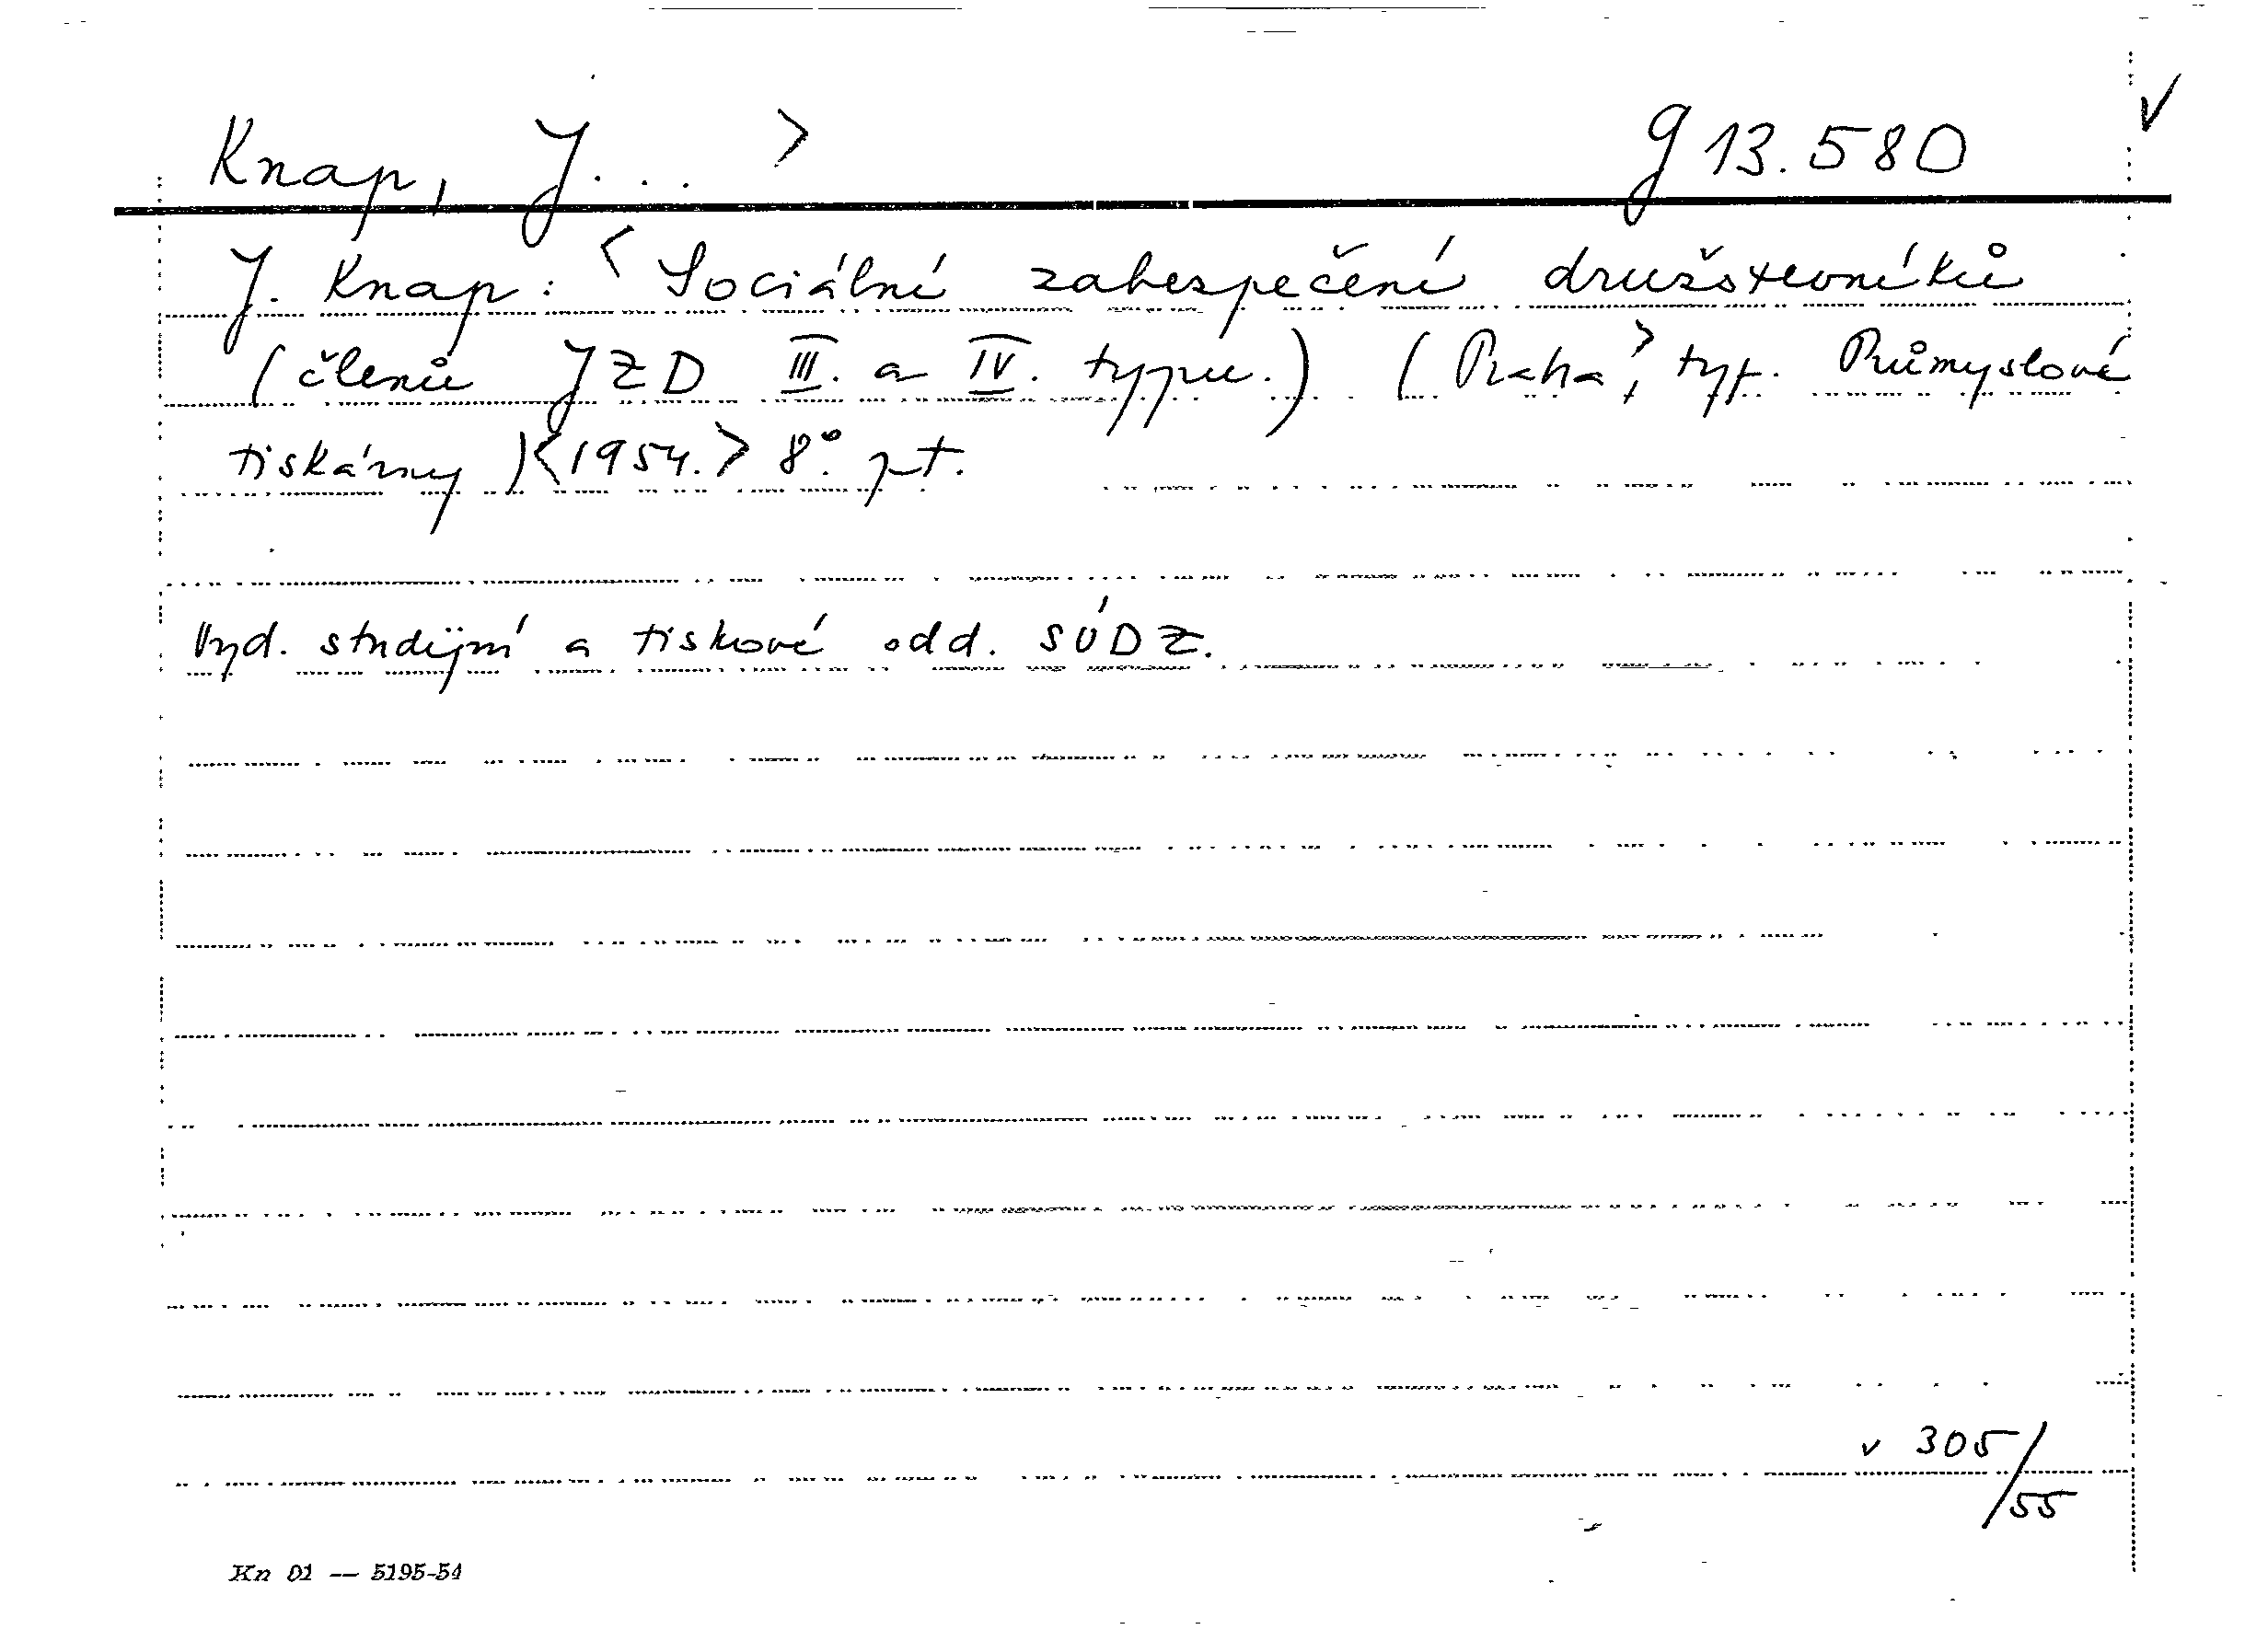 Knap, J... > g 13.580 √
J. Knap: <Sociální zabezpečení družstevníků
(členů JZD III. a IV. typu.) (Praha>, typ. Průmyslové
tiskárny )<1954.> 8°. pt.
Vyd. studijní a tiskové odd. SÚDZ.
v 305/55
Kn 01 — 5195-54